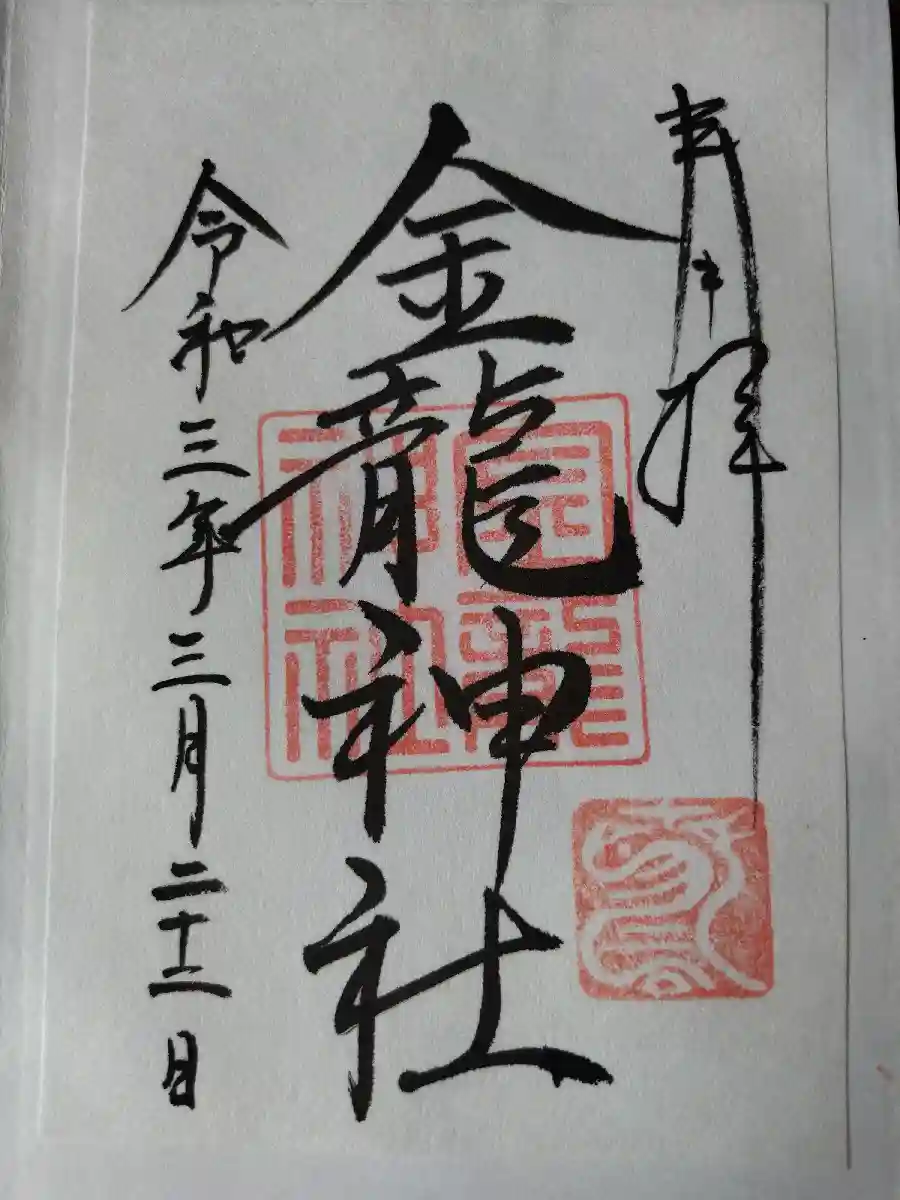 奉拝
金龍神社
令和三年三月二十二日
金龍神社